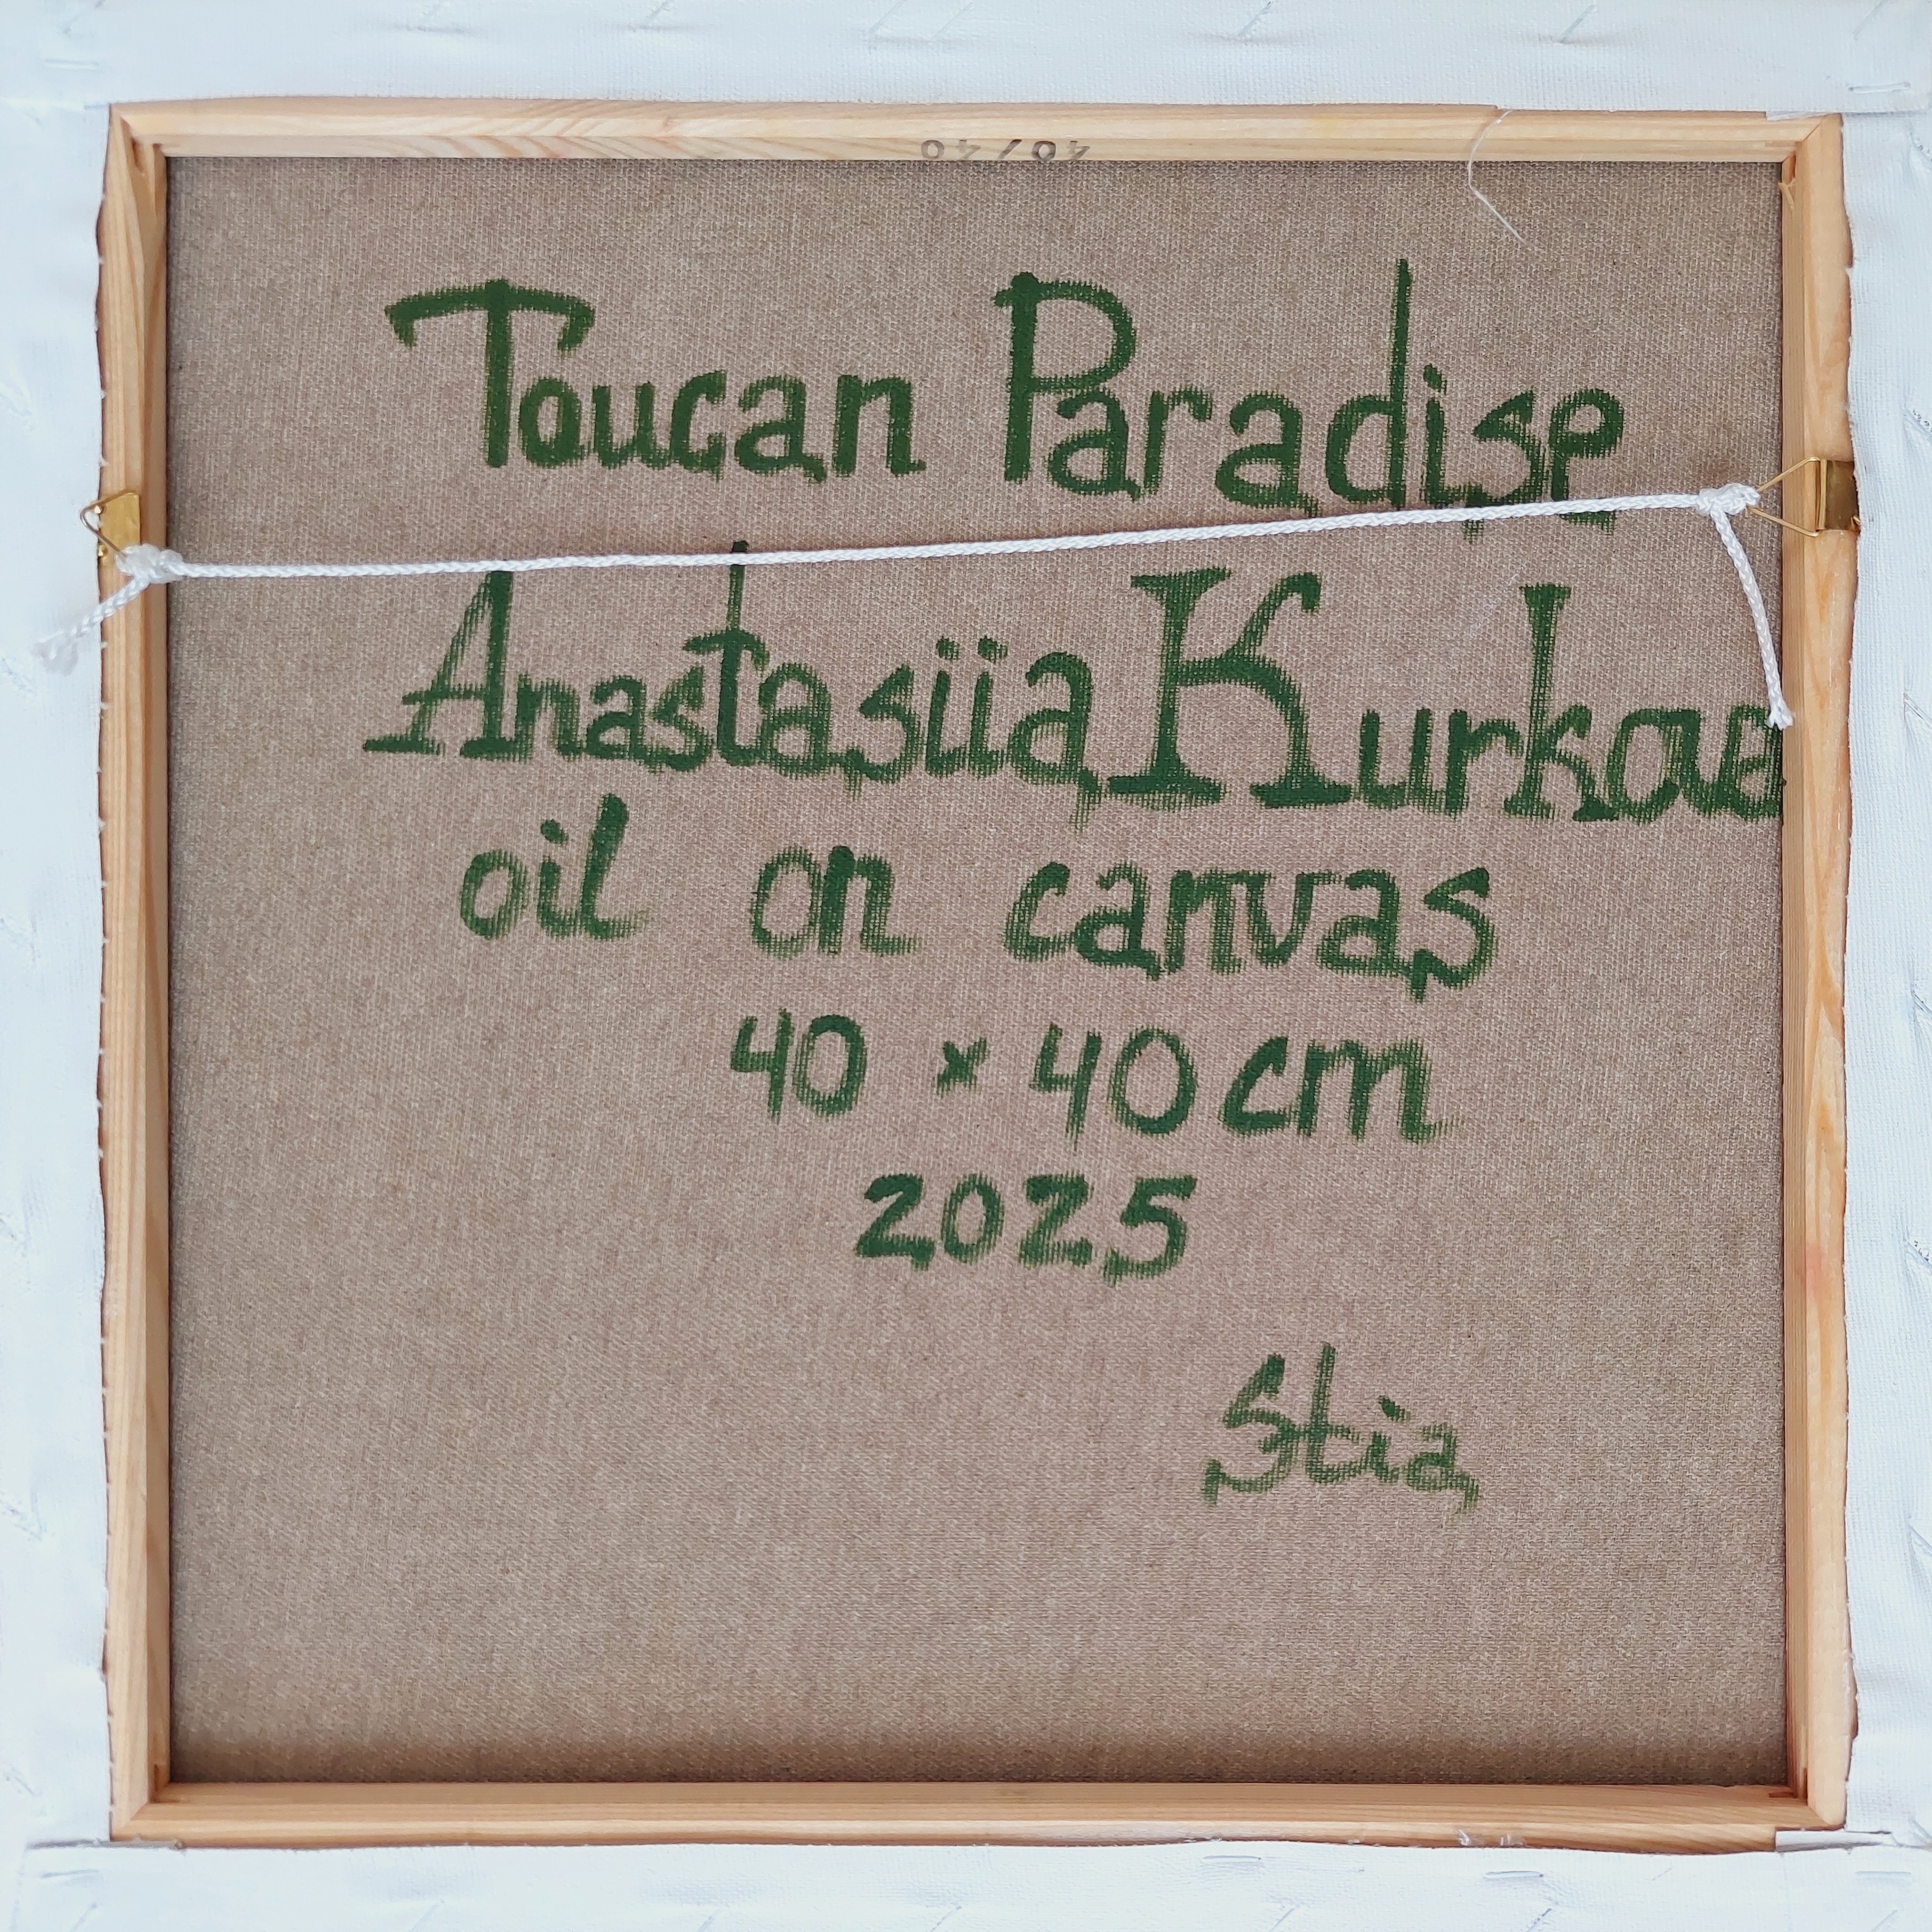 40/40
Toucan Paradise
Anastasiia Kurkova
oil on canvas
40 × 40 cm
2025
Stia